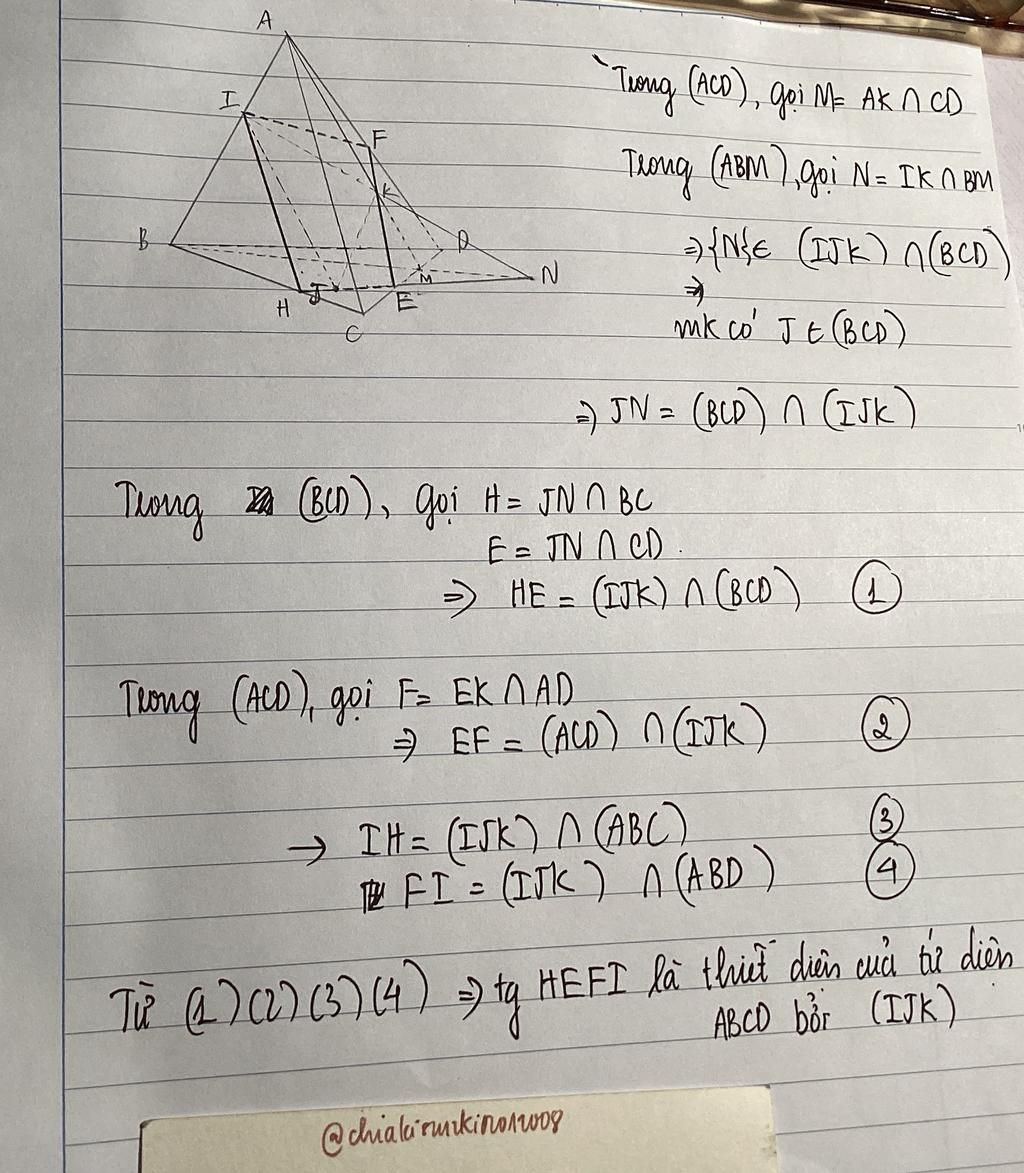 A
I
F
K
B
D
M
N
H
J
E
C
Trong (ACD), gọi M= AK ∩ CD
Trong (ABM), gọi N= IK ∩ BM
⇒ {N} ∈ (IJK) ∩ (BCD)
⇒
mk có J ∈ (BCD)
⇒ JN = (BCD) ∩ (IJK)
Trong (BCD), gọi H= JN ∩ BC
E = JN ∩ CD.
⇒ HE = (IJK) ∩ (BCD) ①
Trong (ACD), gọi F= EK ∩ AD
⇒ EF = (ACD) ∩ (IJK) ②
→ IH = (IJK) ∩ (ABC) ③
FI = (IJK) ∩ (ABD) ④
Từ (1)(2)(3)(4) ⇒ tg HEFI là thiết diên cuả tứ diên
ABCD bởi (IJK)